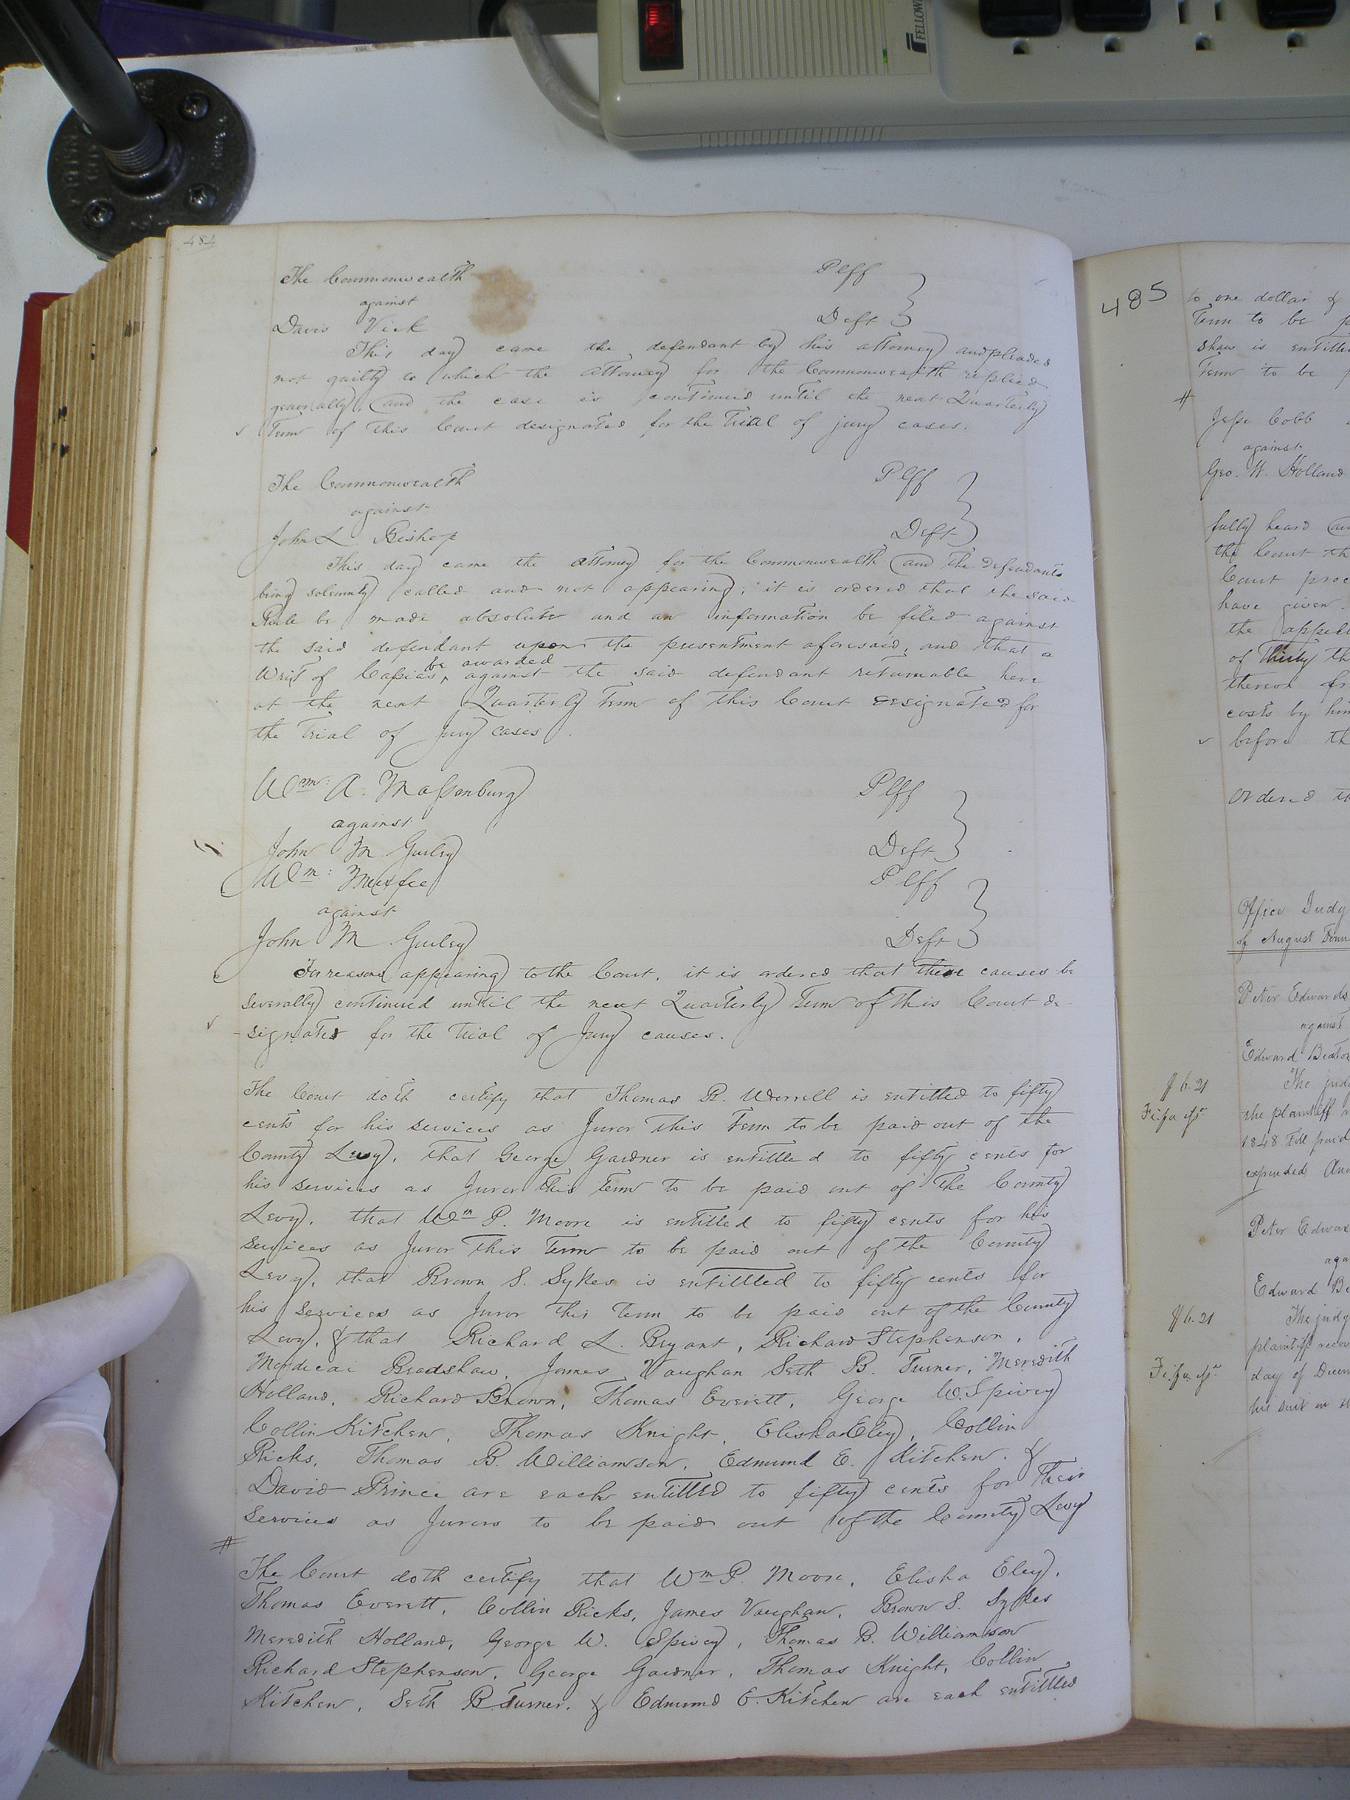 FELLOWES
484
The Commonwealth Plff
against
Davis Vick Deft
This day came the defendant by his attorney and pleaded
not guilty to which the attorney for the Commonwealth replied
generally, and the case is continued until the next Quarterly
Term of this Court designated for the Trial of jury cases.
The Commonwealth Plff
against
John L. Bishop Deft
This day came the attorney for the Commonwealth and the defendants
being solemnly called and not appearing, it is ordered that the said
Rule be made absolute and an information be filed against
the said defendant upon the presentment aforesaid, and that a
be awarded
Writ of Capias, against the said defendant returnable here
at the next Quarterly Term of this Court designated for
the Trial of Jury cases.
Wm: A. Massenburg Plff
against
John M Gurley Deft
Wm: Plff
against
John M Gurley Deft
For reasons appearing to the Court, it is ordered that these causes be
severally continued until the next Quarterly Term of this Court de-
-signated for the trial of Jury causes.
The Court doth certify that Thomas R. Worrell is entitled to fifty
cents for his services as Juror this Term to be paid out of the
County Levy, that George Gardner is entitled to fifty cents for
his services as Juror this Term to be paid out of the County
Levy, that Wm P. Moore is entitled to fifty cents for his
services as Juror this Term to be paid out of the County
Levy, that Brown S. Sykes is entittled to fifty cents for
his services as Juror this Term to be paid out of the County
Levy, & that Richard L. Bryant, Richard Stephenson,
Mordicai Bradshaw, James Vaughan Seth B. Turner, Meredith
Holland, Richard Brown, Thomas Everett, George W. Spivey
Collin Kitchen, Thomas Knight, Elisha Eley, Collin
Ricks, Thomas B. Williamson, Edmund E. Kitchen. &
David Prince are each entitled to fifty cents for their
services as Jurors to be paid out of the County Levy
#
The Court doth certify that Wm P. Moore, Elisha Eley,
Thomas Everett, Collin Ricks, James Vaughan, Brown S. Sykes
Meredith Holland, George W. Spivey, Thomas B. Williamson
Richard Stephenson, George Gardner, Thomas Knight, Collin
Kitchen, Seth B. Turner. & Edmund E. Kitchen are each entittled
485
to one dollar &
Term to be
shaw is
Term to be
#
Jesse Cobb
against
Geo. W. Holland
fully heard
the Court th
Court
have given
the
of Thirty th
thereof
costs by
before th
Ordered
Office
of August Term
Peter Edwards
against
Edward
$6.21 The
the plaintiff
1848 till paid
expended
Peter
Edward
$6.21 The
plaintiff
day of
his suit